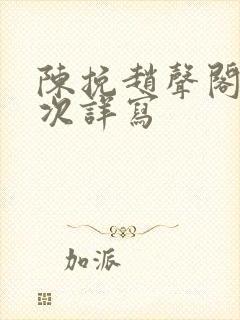 陳挽趙聲閣
次詳寫
加派